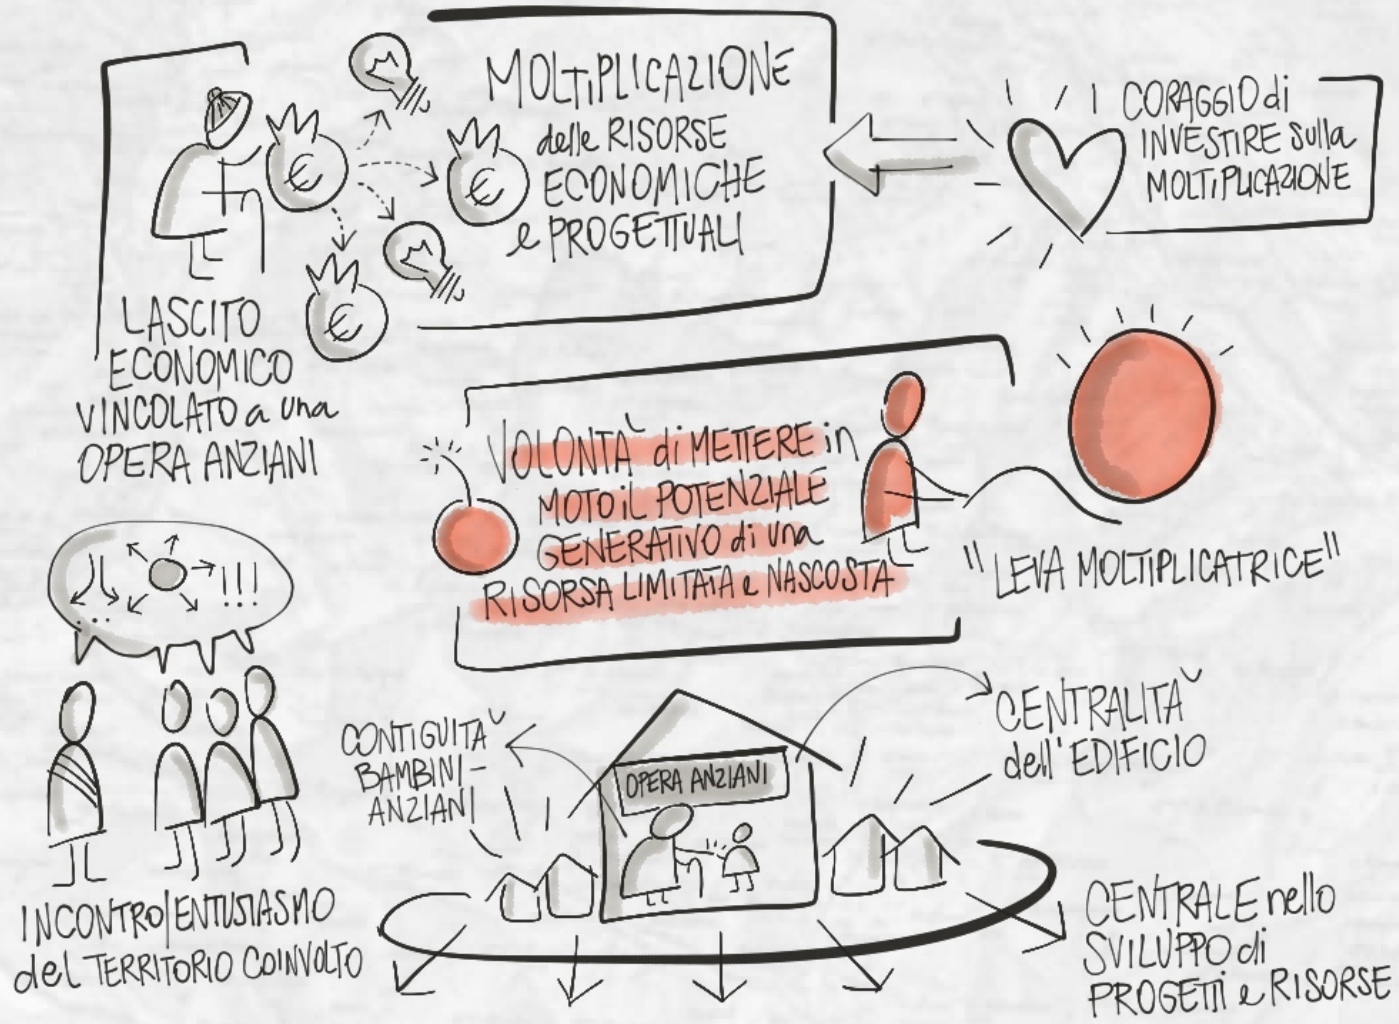 MOLTIPLICAZIONE
delle RISORSE
ECONOMICHE
e PROGETTUALI
CORAGGIO di
INVESTIRE sulla
MOLTIPLICAZIONE
€
€
€
LASCITO
ECONOMICO
VINCOLATO a una
OPERA ANZIANI
VOLONTÀ di METTERE in
MOTO il POTENZIALE
GENERATIVO di una
RISORSA LIMITATA e NASCOSTA
"LEVA MOLTIPLICATRICE"
!!!
INCONTRO/ENTUSIASMO
del TERRITORIO COINVOLTO
CONTIGUITÀ
BAMBINI-
ANZIANI
OPERA ANZIANI
CENTRALITÀ
dell'EDIFICIO
CENTRALE nello
SVILUPPO di
PROGETTI e RISORSE